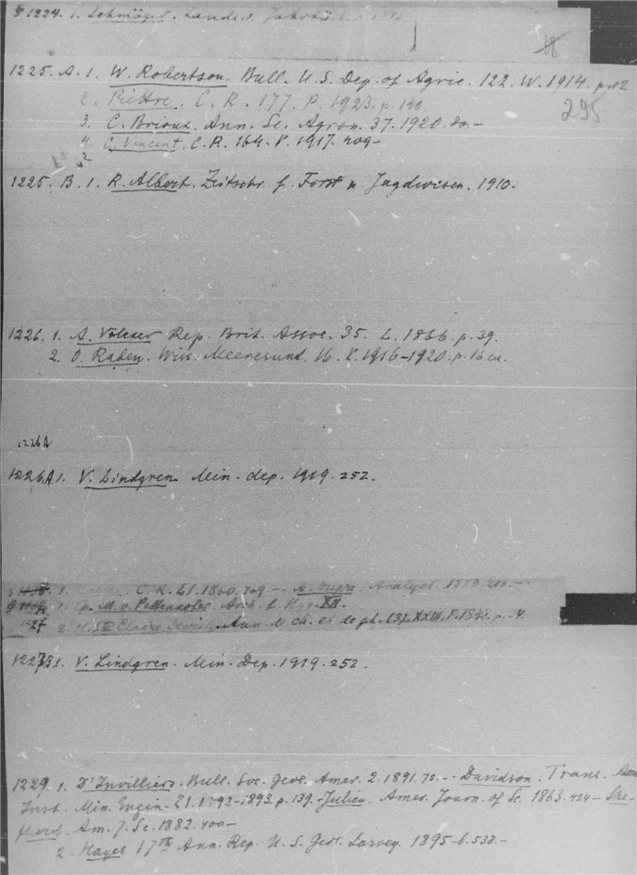 1224. 1. Schmöger. Landw. Jahrb.
18
1225. A. 1. W. Robertson. Bull. U. S. Dep. of Agric. 122. W. 1914. p. 12
2. C. R. 177. P. 1923. p. 140.
295
3. C. Brioux. Ann. Sc. Agron. 37. 1920. 80.-
4. C. Vincent. C. R. 164. P. 1917. 409-
1225. B. 1. R. Albert. Zeitschr. f. Forst u. Jagdwesen. 1910.
1226. 1. A. Völcker Rep. Brit. Assoc. 35. L. 1866. p. 39.
2. O. Raben. Wiss. Meeresunt. 16. K. 1916-1920. p. 16
1226A
1226A. 1. V. Lindgren Min. dep. 1919. 252.
1. C. R. 51. 1860. 709 -. Analyst
1. M. v. Pettenkofer. Arch. f. Hyg. XII.
2. H. Ann. de ch. et de ph. [3]. XXIII. P. 1848. p.
1227B 1. V. Lindgren. Min. Dep. 1919. 252.
1229. 1. D'Invilliers. Bull. Soc. Geol. Amer. 2. 1891. 75. - Davidson. Trans. Am
Inst. Min. Engin. 21. 1892-1893. p. 139. - Julien. Amer. Journ. of Sc. 1863. 424 - She-
pherd. Am. J. Sc. 1882. 400 -
2. Hayes 17th Ann. Rep. U. S. Geol. Survey. 1895-6. 538. -